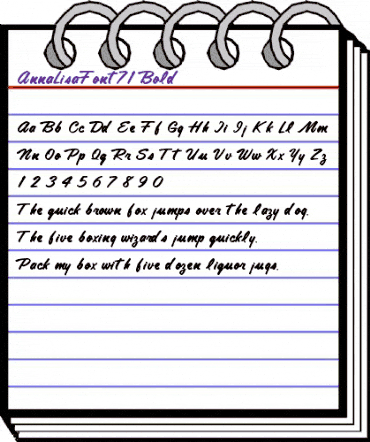 AnnaLisaFont71 Bold
Aa Bb Cc Dd Ee Ff Gg Hh Ii Jj Kk Ll Mm
Nn Oo Pp Qq Rr Ss Tt Uu Vv Ww Xx Yy Zz
1 2 3 4 5 6 7 8 9 0
The quick brown fox jumps over the lazy dog.
The five boxing wizards jump quickly.
Pack my box with five dozen liquor jugs.